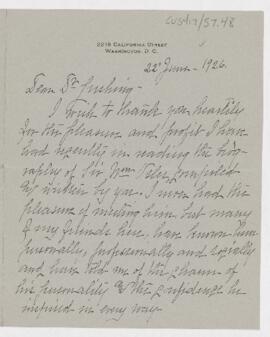 CUS417/57.48
2219 California Street
Washington, D. C.
22d June - 1926.
Dear Dr Cushing:
I wish to thank you heartily
for the pleasure and profit I have
had recently in reading the biog-
raphy of Sir Wm Osler compiled
& written by you. I never had the
pleasure of meeting him but many
of my friends here, have known him
personally, professionally and socially
and have told me of the charm of
his personality & the confidence he
inspired in every way.